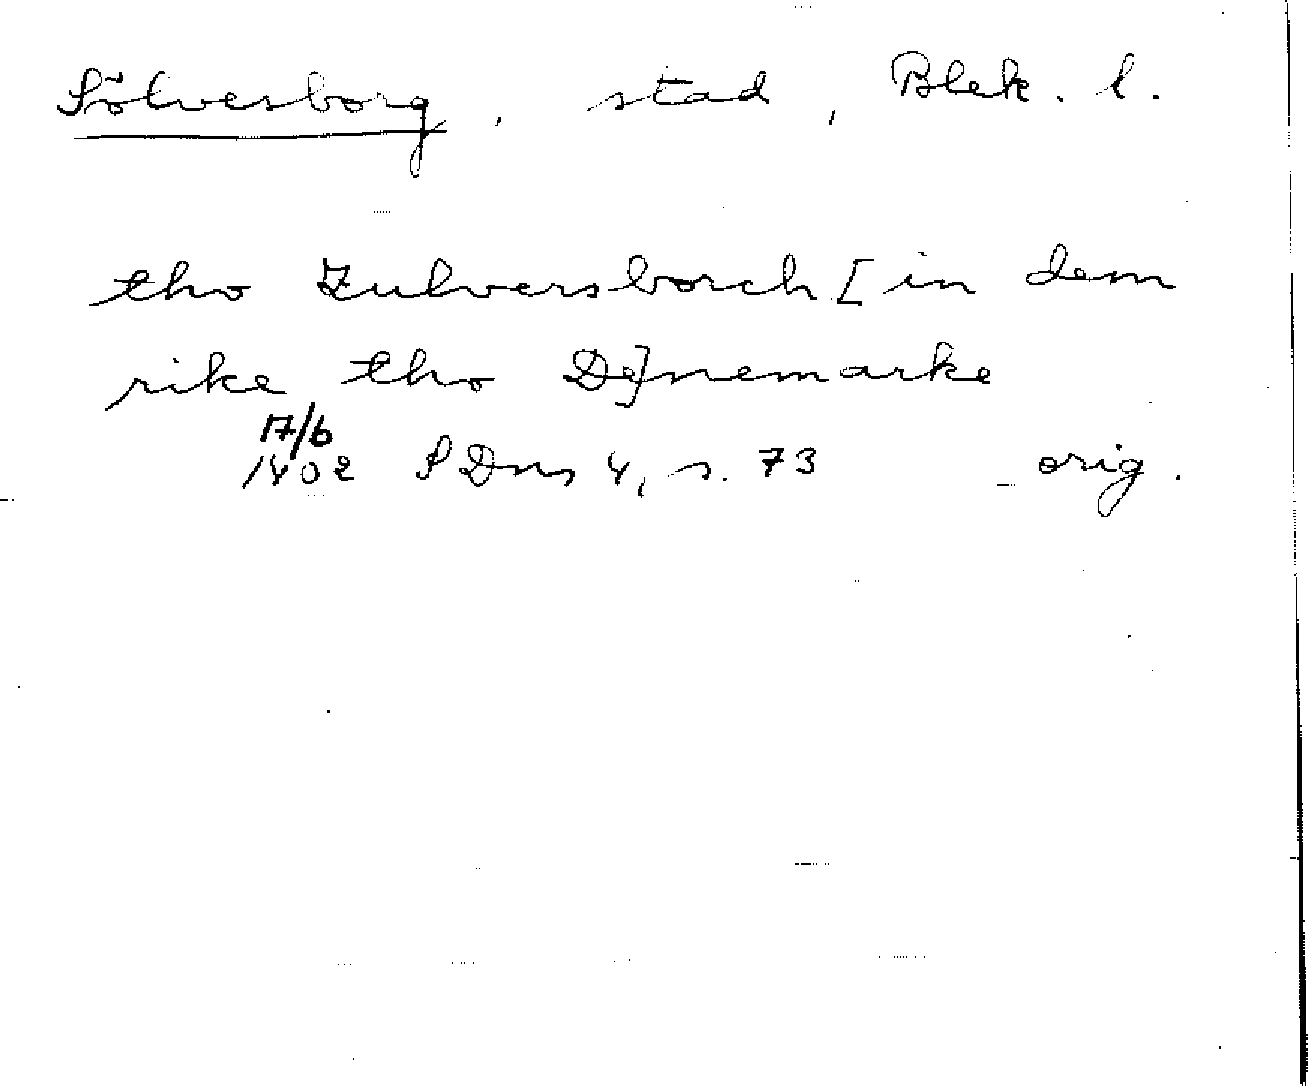 Sölvesborg, stad, Blek. l.
tho Zulversborch [in dem
rike tho De]nemarke
17/6
1402 SDns 4, s. 73 orig.